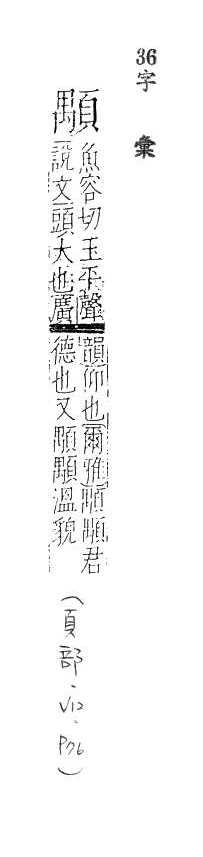 36字 彙
顒
魚容切玉平聲
說文頭大也廣
韻仰也爾雅顒顒君
德也又顒顒溫貌
(頁部·V12·P76)